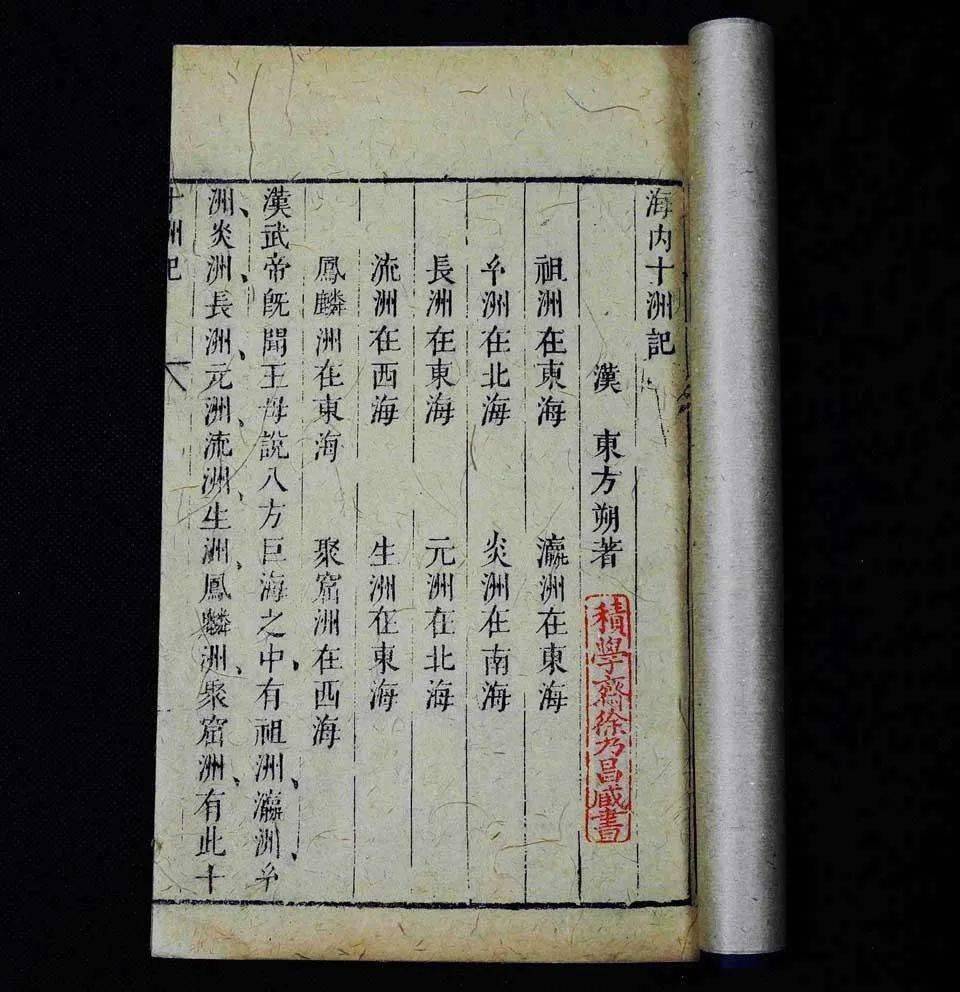 海内十洲記
漢　東方朔著
積學齋徐乃昌藏書
祖洲在東海　瀛洲在東海
玄洲在北海　炎洲在南海
長洲在東海　元洲在北海
流洲在西海　生洲在東海
鳳麟洲在東海　聚窟洲在西海
漢武帝旣聞王母說八方巨海之中、有祖洲、瀛洲、玄
洲、炎洲、長洲、元洲、流洲、生洲、鳳麟洲、聚窟洲、有此十
十洲記